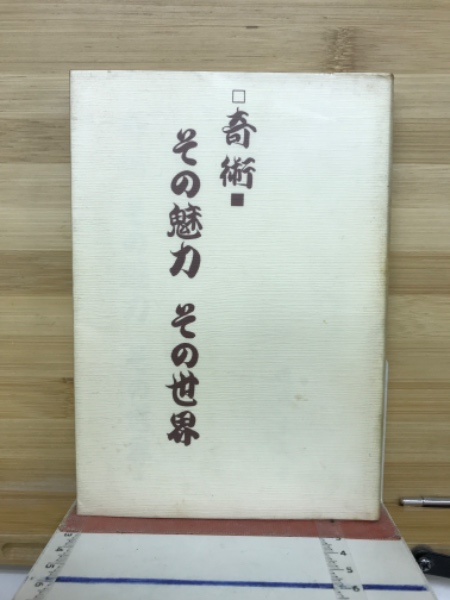 □奇術■
その魅力 その世界